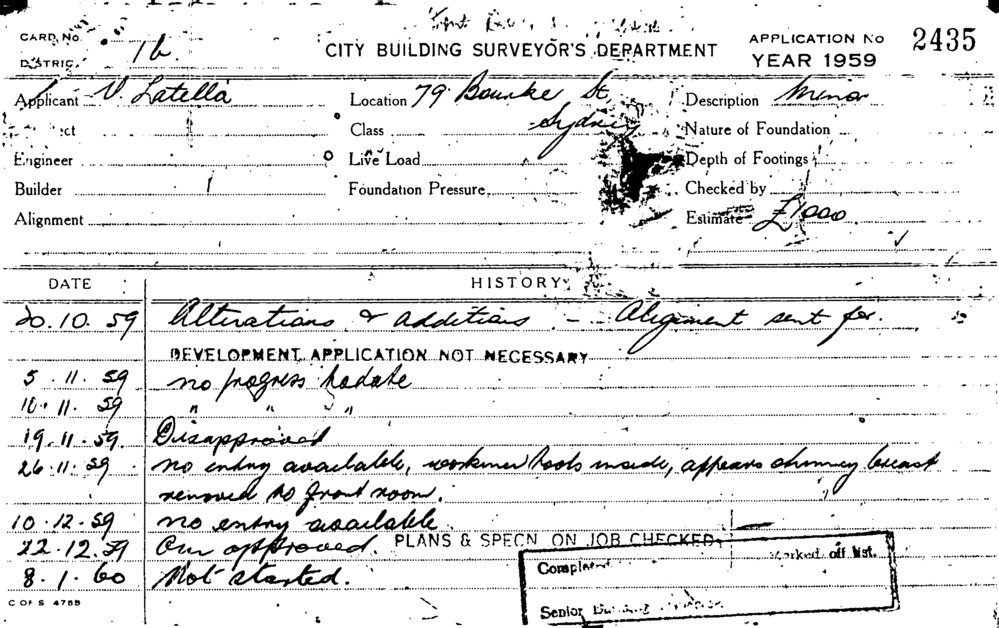 CARD No.
DISTRICT 16
CITY BUILDING SURVEYOR'S DEPARTMENT
APPLICATION No 2435
YEAR 1959
Applicant V. Latella
Location 79 Bourke St, Sydney
Description Minor
Class
Nature of Foundation
Engineer
Live Load
Depth of Footings
Builder
Foundation Pressure
Checked by
Alignment
Estimate £1000
DATE HISTORY
20.10.59 Alterations & additions - Alignment sent for.
DEVELOPMENT APPLICATION NOT NECESSARY
5.11.59 no progress to date
10.11.59 " " "
19.11.59. Disapproved
26.11.59 no entry available, workmen tools inside, appears chimney breast
removed to front room.
10.12.59 no entry available
22.12.59 approved. PLANS & SPECN ON JOB CHECKED.
8.1.60 Not started.
Completed Marked off list.
Senior Building
C OF S 4785